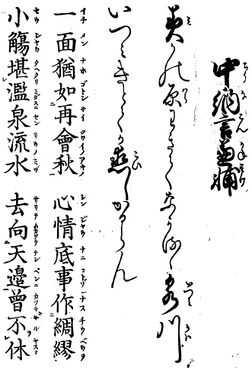 中納言兼輔
みかの原わきてなかるゝ泉川
いつみきとてか戀しかるらん
一面猶如再會秋 心情底事作綢繆
小觴堪濫泉流水 去向天邊曾不休